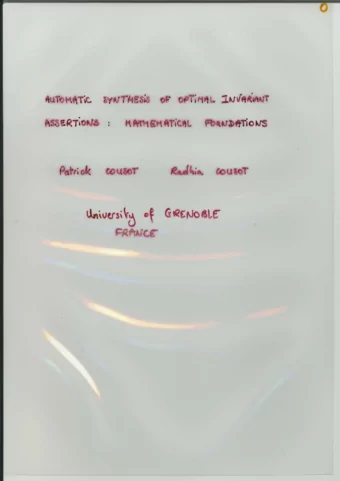 AUTOMATIC SYNTHESIS OF OPTIMAL INVARIANT
ASSERTIONS : MATHEMATICAL FOUNDATIONS
Patrick COUSOT Radhia COUSOT
University of GRENOBLE
FRANCE